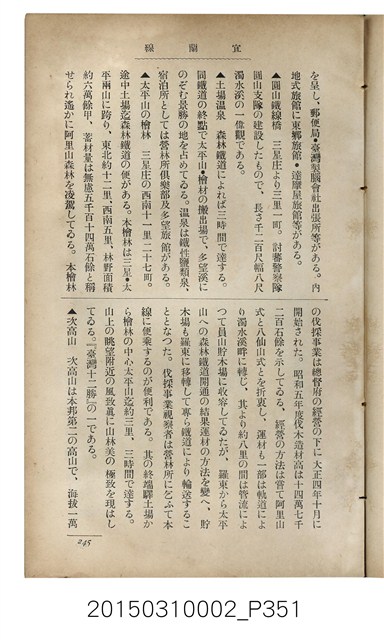 宜蘭線
を呈し、郵便局・臺灣製腦會社出張所等がある。内
地式旅館に東鄕旅館・達摩屋旅館等がある。
▲圓山鐵線橋　三星庄より三里一町。討蕃警察隊
圓山支隊の建設したもので、長さ千二百尺幅八尺
濁水溪の一偉觀である。
▲土場溫泉　森林鐵道によれば三時間で達する。
同鐵道の終點で太平山・檜材の搬出場で、多望溪に
のぞむ景勝の地を占めてゐる。溫泉は鐵性鹽類泉、
宿泊所としては營林所俱樂部及多望旅館がある。
▲太平山の檜林　三星庄の西南十一里二十七町。
途中土場迄森林鐵道の便がある。本檜林は三星・太
平兩山に跨り、東北約十二里、西南五里、林野面積
約六萬餘甲、蓄材量は無慮五千百十四萬石餘と稱
せられ遙かに阿里山森林を凌駕してゐる。本檜林
の伐採事業は總督府の經營の下に大正四年十月に
開始された。昭和五年度伐木造材高は十四萬七千
二百石餘を示してゐる、經營の方法は嘗て阿里山
式と八仙山式とを折衷し、運材も一部は軌道によ
り濁水溪畔に轉じ、其より約八里の間は管流によ
つて員山貯木場に收容してゐたが、羅東から太平
山への森林鐵道開通の結果運材の方法を變へ、貯
木場も羅東に移轉して專ら鐵道により輸送するこ
ととなつた。伐採事業視察者は營林所に乞ふて本
線に便乘するのが便利である。其の終端驛土場か
ら檜林の中心太平山迄約三里、三時間で達する。
山上の眺望附近の風致眞に山林美の極致を現はし
てゐる。『臺灣十二勝』の一である。
▲次高山　次高山は本邦第二の高山で、海拔一萬
20150310002_P351